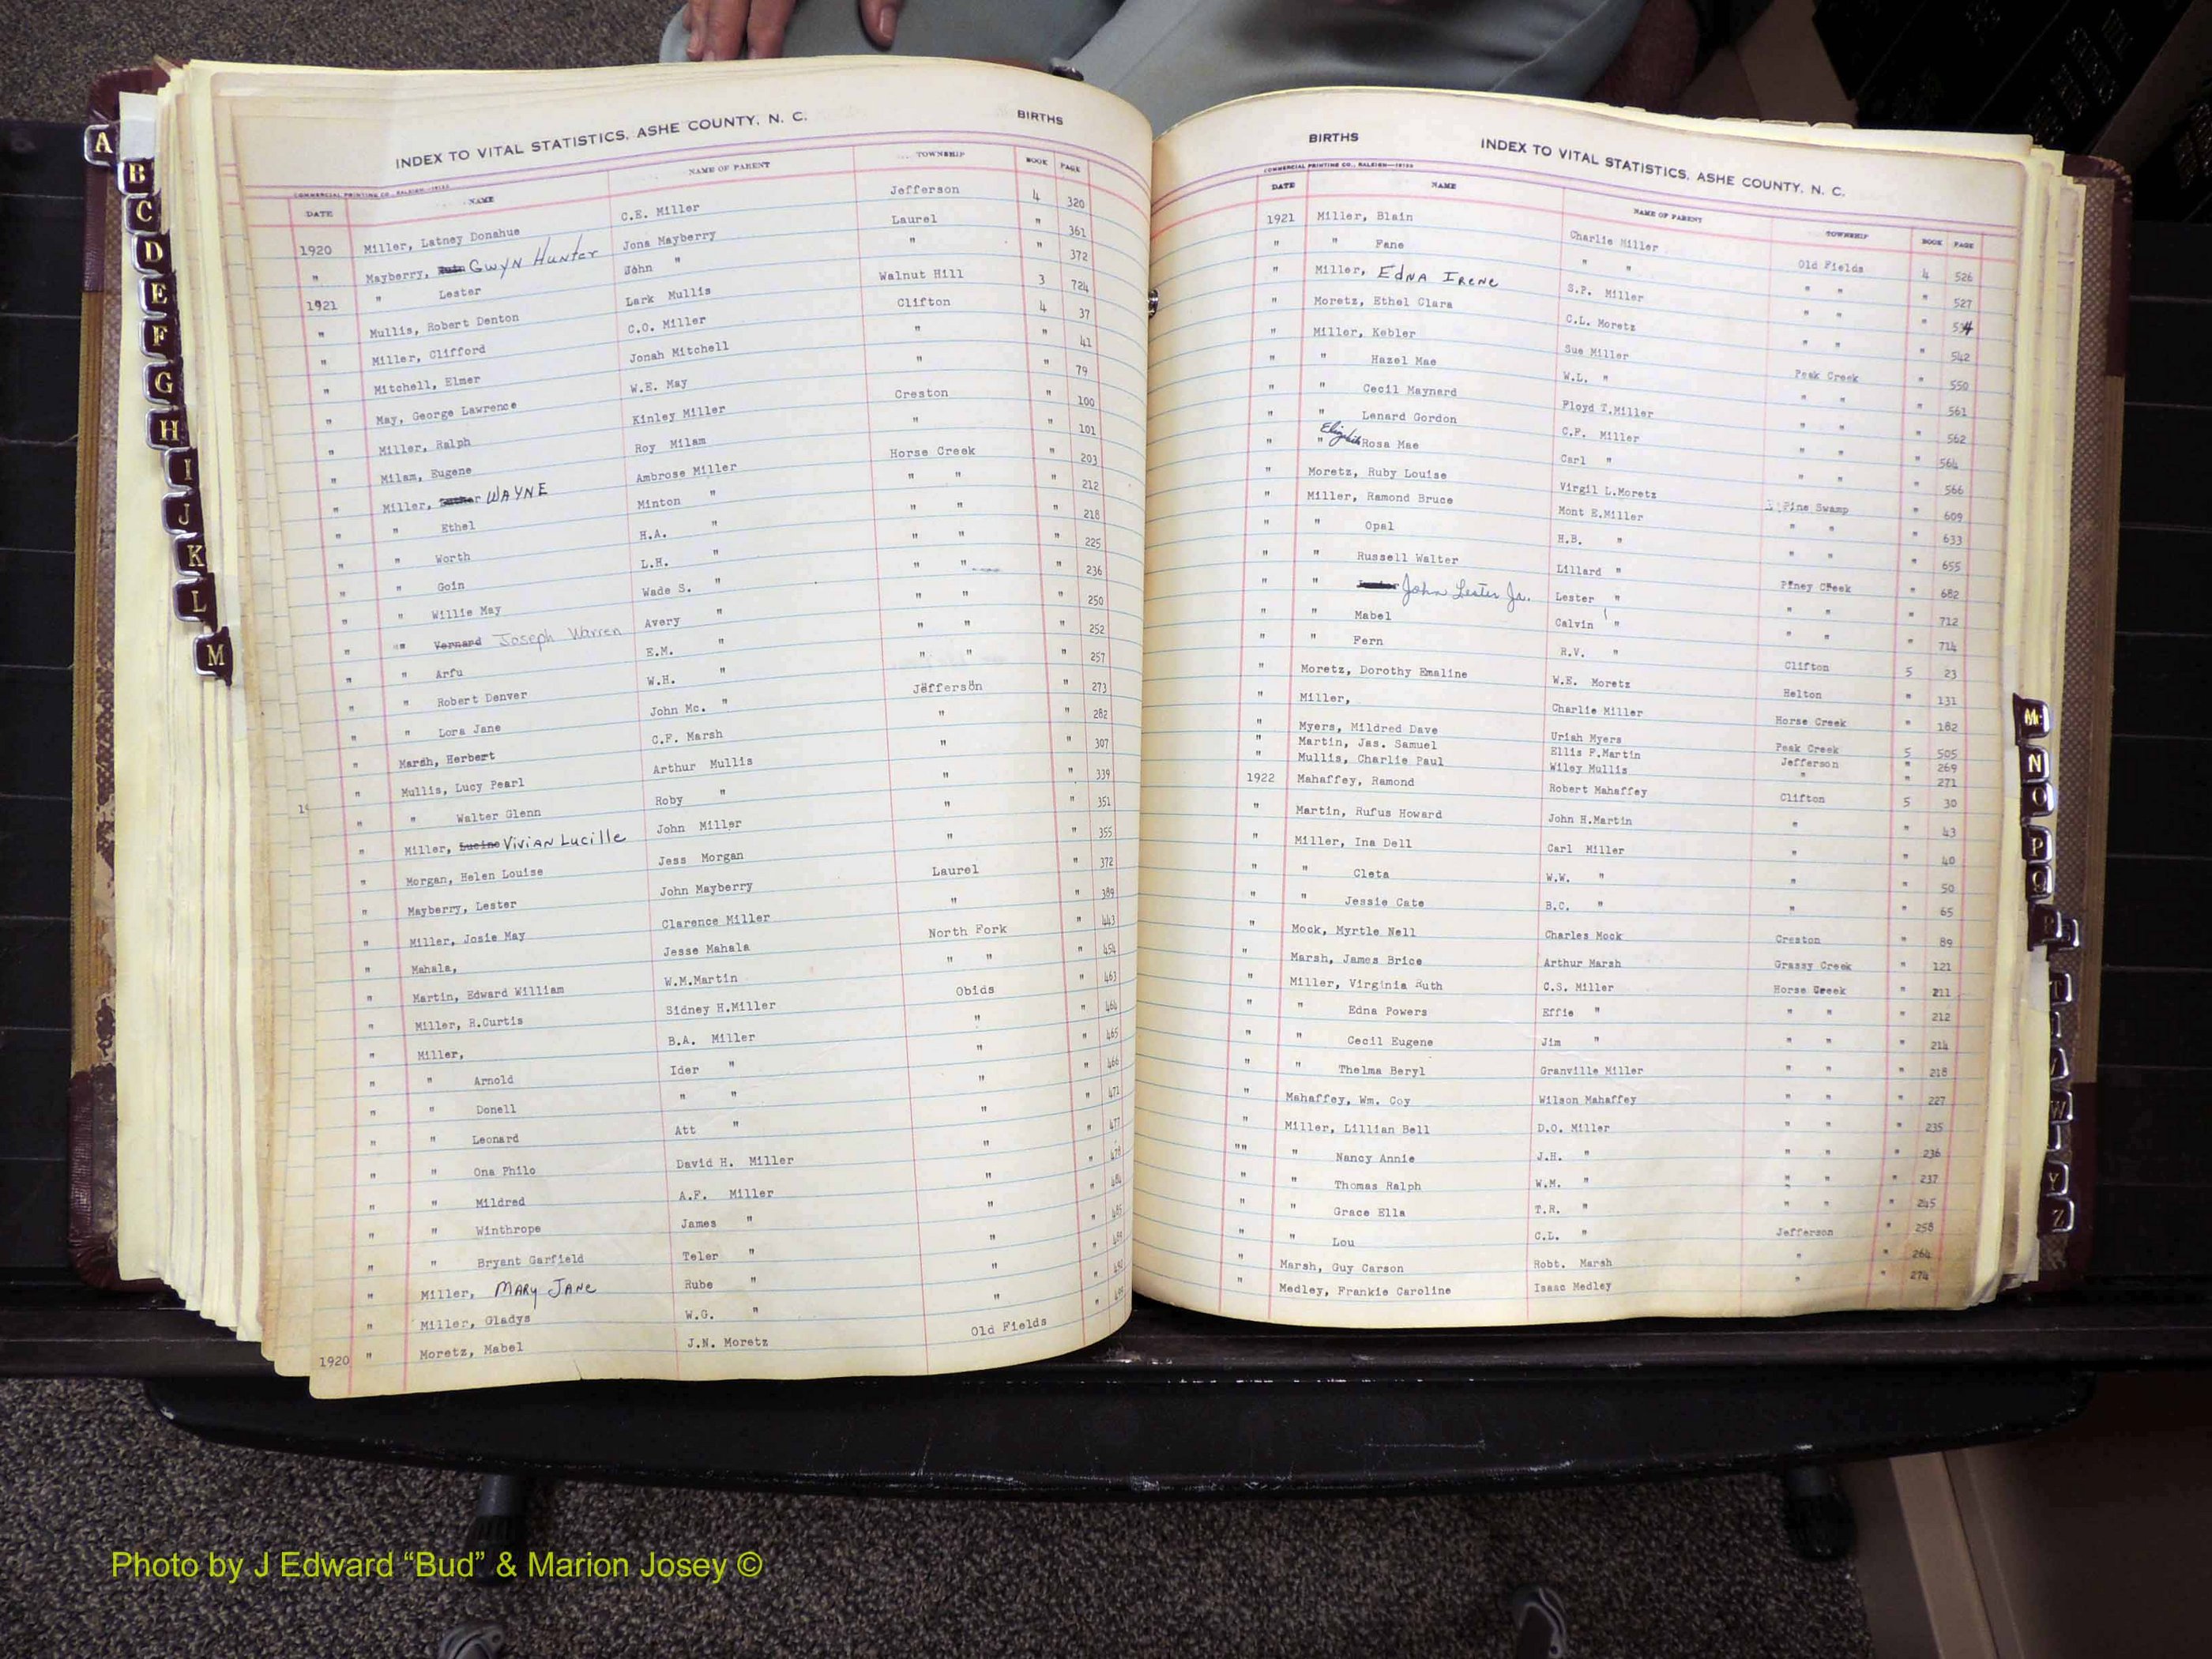 INDEX TO VITAL STATISTICS, ASHE COUNTY, N. C. BIRTHS
COMMERCIAL PRINTING CO., RALEIGH
DATE NAME NAME OF PARENT TOWNSHIP BOOK PAGE
1920 Miller, Latney Donahue C.E. Miller Jefferson 4 320
" Mayberry, GWYN Hunter Jona Mayberry Laurel " 361
1921 " Lester John " " " 372
" Mullis, Robert Denton Lark Mullis Walnut Hill 3 724
" Miller, Clifford C.O. Miller Clifton 4 37
" Mitchell, Elmer Jonah Mitchell " " 41
" May, George Lawrence W.E. May " " 79
" Miller, Ralph Kinley Miller Creston " 100
" Milam, Eugene Roy Milam " " 101
" Miller, WAYNE Ambrose Miller Horse Creek " 203
" " Ethel Minton " " " " 212
" " Worth H.A. " " " " 218
" " Goin L.H. " " " " 225
" " Willie May Wade S. " " " " 236
" "" Vernard Joseph Warren Avery " " " " 250
" " Arfu E.M. " " " " 252
" " Robert Denver W.H. " " " " 257
" " Lora Jane John Mc. " Jefferson " 273
" Marsh, Herbert C.F. Marsh " " 282
" Mullis, Lucy Pearl Arthur Mullis " " 307
" " Walter Glenn Roby " " " 339
" Miller, Lucine VIVIAN LUCILLE John Miller " " 351
" Morgan, Helen Louise Jess Morgan " " 355
" Mayberry, Lester John Mayberry Laurel " 372
" Miller, Josie May Clarence Miller " " 389
" Mahala, Jesse Mahala North Fork " 443
" Martin, Edward William W.M.Martin " " " 454
" Miller, R.Curtis Sidney H.Miller Obids " 463
" Miller, B.A. Miller " " 464
" " Arnold Ider " " " 465
" " Donell " " " " 466
" " Leonard Att " " " 471
" " Ona Philo David H. Miller " " 477
" " Mildred A.F. Miller " "
" " Winthrope James " " "
" " Bryant Garfield Teler " " "
" Miller, MARY JANE Rube " " "
" Miller, Gladys W.G. " " "
1920 " Moretz, Mabel J.N. Moretz Old Fields "
BIRTHS INDEX TO VITAL STATISTICS, ASHE COUNTY, N. C.
COMMERCIAL PRINTING CO., RALEIGH
DATE NAME NAME OF PARENT TOWNSHIP BOOK PAGE
1921 Miller, Blain Charlie Miller Old Fields 4 526
" " Fane " " " " " 527
" Miller, EDNA IRENE S.P. Miller " " " 534
" Moretz, Ethel Clara C.L. Moretz " " " 542
" Miller, Kebler Sue Miller Peak Creek " 550
" " Hazel Mae W.L. " " " " 561
" " Cecil Maynard Floyd T.Miller " " " 562
" " Lenard Gordon C.F. Miller " " " 564
" " Elizabeth Rosa Mae Carl " " " " 566
" Moretz, Ruby Louise Virgil L.Moretz Pine Swamp " 609
" Miller, Ramond Bruce Mont E.Miller " " " 633
" " Opal H.B. " " " " 655
" " Russell Walter Lillard " Piney Creek " 682
" " John Lester Jr. Lester " " " " 712
" " Mabel Calvin " " " " 714
" " Fern R.V. " Clifton 5 23
" Moretz, Dorothy Emaline W.E. Moretz Helton " 131
" Miller, Charlie Miller Horse Creek " 182
" Myers, Mildred Dave Uriah Myers Peak Creek 5 505
" Martin, Jas. Samuel Ellis F.Martin Jefferson " 269
" Mullis, Charlie Paul Wiley Mullis " " 271
1922 Mahaffey, Ramond Robert Mahaffey Clifton 5 30
" Martin, Rufus Howard John H.Martin " " 43
" Miller, Ina Dell Carl Miller " " 40
" " Cleta W.W. " " " 50
" " Jessie Cate B.C. " " " 65
" Mock, Myrtle Nell Charles Mock Creston " 89
" Marsh, James Brice Arthur Marsh Grassy Creek " 121
" Miller, Virginia Ruth C.S. Miller Horse Creek " 211
" " Edna Powers Effie " " " " 212
" " Cecil Eugene Jim " " " " 214
" " Thelma Beryl Granville Miller " " " 218
" Mahaffey, Wm. Coy Wilson Mahaffey " " " 227
" Miller, Lillian Bell D.O. Miller " " " 235
"" " Nancy Annie J.H. " " " " 236
" " Thomas Ralph W.M. " " " " 237
" " Grace Ella T.R. " " " " 245
" " Lou C.L. " Jefferson " 258
" Marsh, Guy Carson Robt. Marsh " " 264
" Medley, Frankie Caroline Isaac Medley " " 274
A
B
C
D
E
F
G
H
I
J
K
L
M
Mc
N
O
P
Q
T
W
Y
Z
Photo by J Edward “Bud” & Marion Josey ©